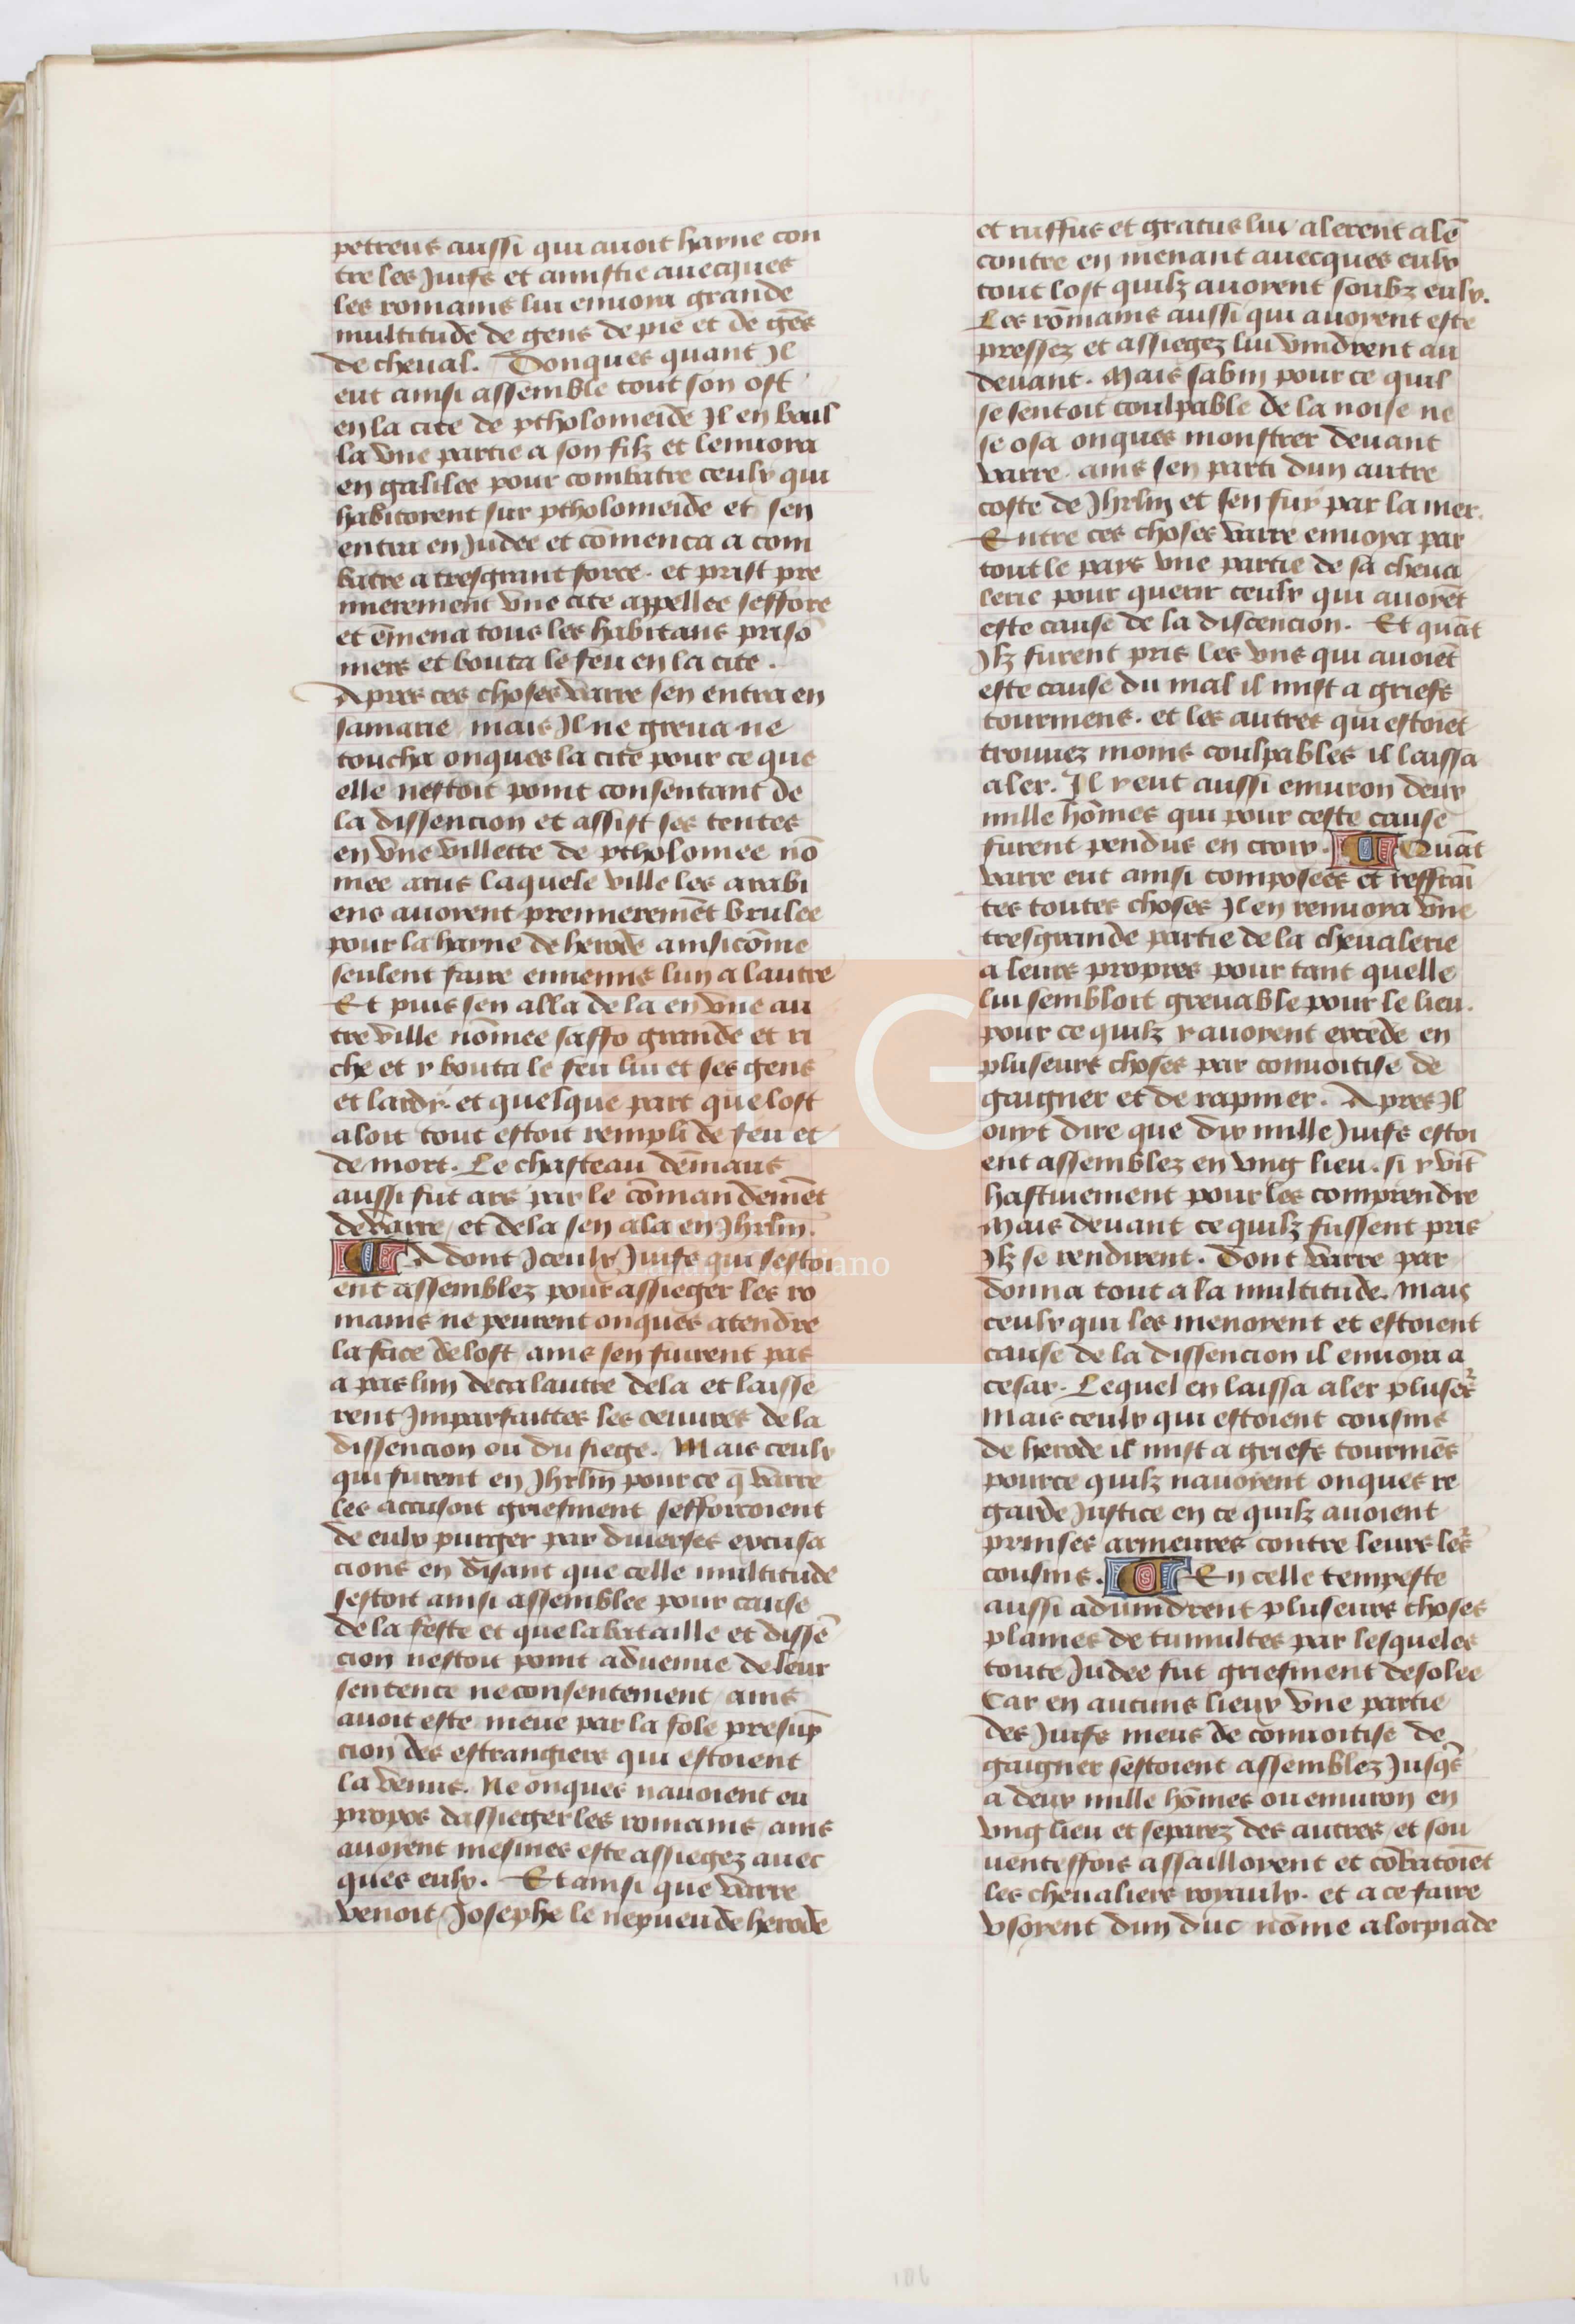 petreus aussi qui auoit hayne con
tre les Juifs et amistie auecques
les romains lui enuoia grande
multitude de gens de pie et de gēs
de cheual. Donques quant Jl
eut ainsi assemble tout son ost
en la cite de ptholomeide Jl en bail
la vne partie a son filz et lenuoia
en galilee pour combatre ceulx qui
habitoient sur ptholomeide et sen
entra en Judee et cōmenca a com
batre a tresgrant force. et prist pre
mierement vne cite appellee seffore
et ēmena tous les habitans priso
niers et bouta le feu en la cite.
Apres ces choses varre sen entra en
samarie mais Jl ne greua ne
toucha onques la cite pour ce que
elle nestoit point consentant de
la dissencion et assist ses tentes
en vne villette de ptholomee nō
mee arus laquele ville les arabi
ens auoyent premieremēt brulee
pour la hayne de herode ainsi cōme
seulent faire ennemis lun a lautre
Et puis sen alla de la en vne au
tre ville nōmee saffo grande et ri
che et y bouta le feu lui et ses gens
et lardy. et quelque part que lost
aloit tout estoit rempli de feu et
de mort. Le chasteau dēmaus
aussi fut ars par le cōmandemēt
de varre / et de la sen ala en Jhrlm̄.
Adont Jceulx Juifs qui sestoi
ent assemblez pour assieger les ro
mains ne peurent onques atendre
la face de lost / ains sen fuirent pas
a pas lun deca lautre dela et laisse
rent Jmparfaittes les oeuures de la
dissencion ou du siege. Mais ceulx
qui furent en Jhrlm̄ pour ce q̄ varre
les accusoit griefment sefforcoient
de eulx purger par diuerses excusa
cions en disant que celle multitude
sestoit ainsi assemblee pour cause
de la feste et que la bataille et dissē
cion nestoit point aduenue de leur
sentence ne consentement / ains
auoit este meue par la fole presūp
cion des estrangiers qui estoient
la venus. Ne onques nauoient eu
propos dassieger les romains / ains
auoyent mesmes este assiegez auec
ques eulx. Et ainsi que varre
venoit / Josephe le nepueu de herode
et ruffus et gratus lui alerent alē
contre en menant auecques eulx
tout lost quilz auoyent soubz eulx.
Les rōmains aussi qui auoyent este
pressez et assiegez lui vindrent au
deuant. Mais sabin pour ce quil
se sentoit coulpable de la noise ne
se osa onques monstrer deuant
varre. ains sen parti dun autre
coste de Jhrlm et sen fuy par la mer.
Entre ces choses varre enuoya par
tout le pays vne partie de sa cheua
lerie pour querir ceulx qui auoyēt
este cause de la discencion. Et quāt
Jlz furent pris les vns qui auoiēt
este cause du mal il mist a griefs
tourmens. et les autres qui estoiēt
trouuez moins coulpables il laissa
aler. Jl y eut aussi enuiron deux
mille hōmes qui pour ceste cause
furent pendus en croix. Quāt
varre eut ainsi composees et reffrai
tes toutes choses Jl en renuoya vne
tresgrande partie de la cheualerie
a leurs propres pour tant quelle
lui sembloit greuable pour le lieu.
pour ce quilz y auoyent excede en
pluseurs choses par conuoitise de
gaigner et de rapiner. Apres Jl
ouyt dire que dix mille Juifs estoi
ent assemblez en vng lieu. si y vīt
hastiuement pour les comprendre
Mais deuant ce quilz fussent pris
Jlz se rendirent. Dont varre par
donna tout a la multitude. Mais
ceulx qui les menoyent et estoient
cause de la dissencion il enuoya a
cesar. Lequel en laissa aler pluseᷣs
Mais ceulx qui estoient cousins
de herode il mist a griefs tourmēs
pource quilz nauoyent onques re
garde Justice en ce quilz auoient
prinses armeures contre leurs leᷣs
cousins. En celle tempeste
aussi aduindrent pluseurs choses
plaines de tumultes par lesqueles
toute Judee fut griefment desolee
Car en aucuns lieux vne partie
des Juifs meus de conuoitise de
gaigner sestoient assemblez Jusq̄s
a deux mille hōmes ou enuiron en
vng lieu et separez des autres / et sou
uenteffois assailloyent et cōbatoiēt
les cheualiers royaulx. et a ce faire
vsoyent dun duc nōme alorpiade